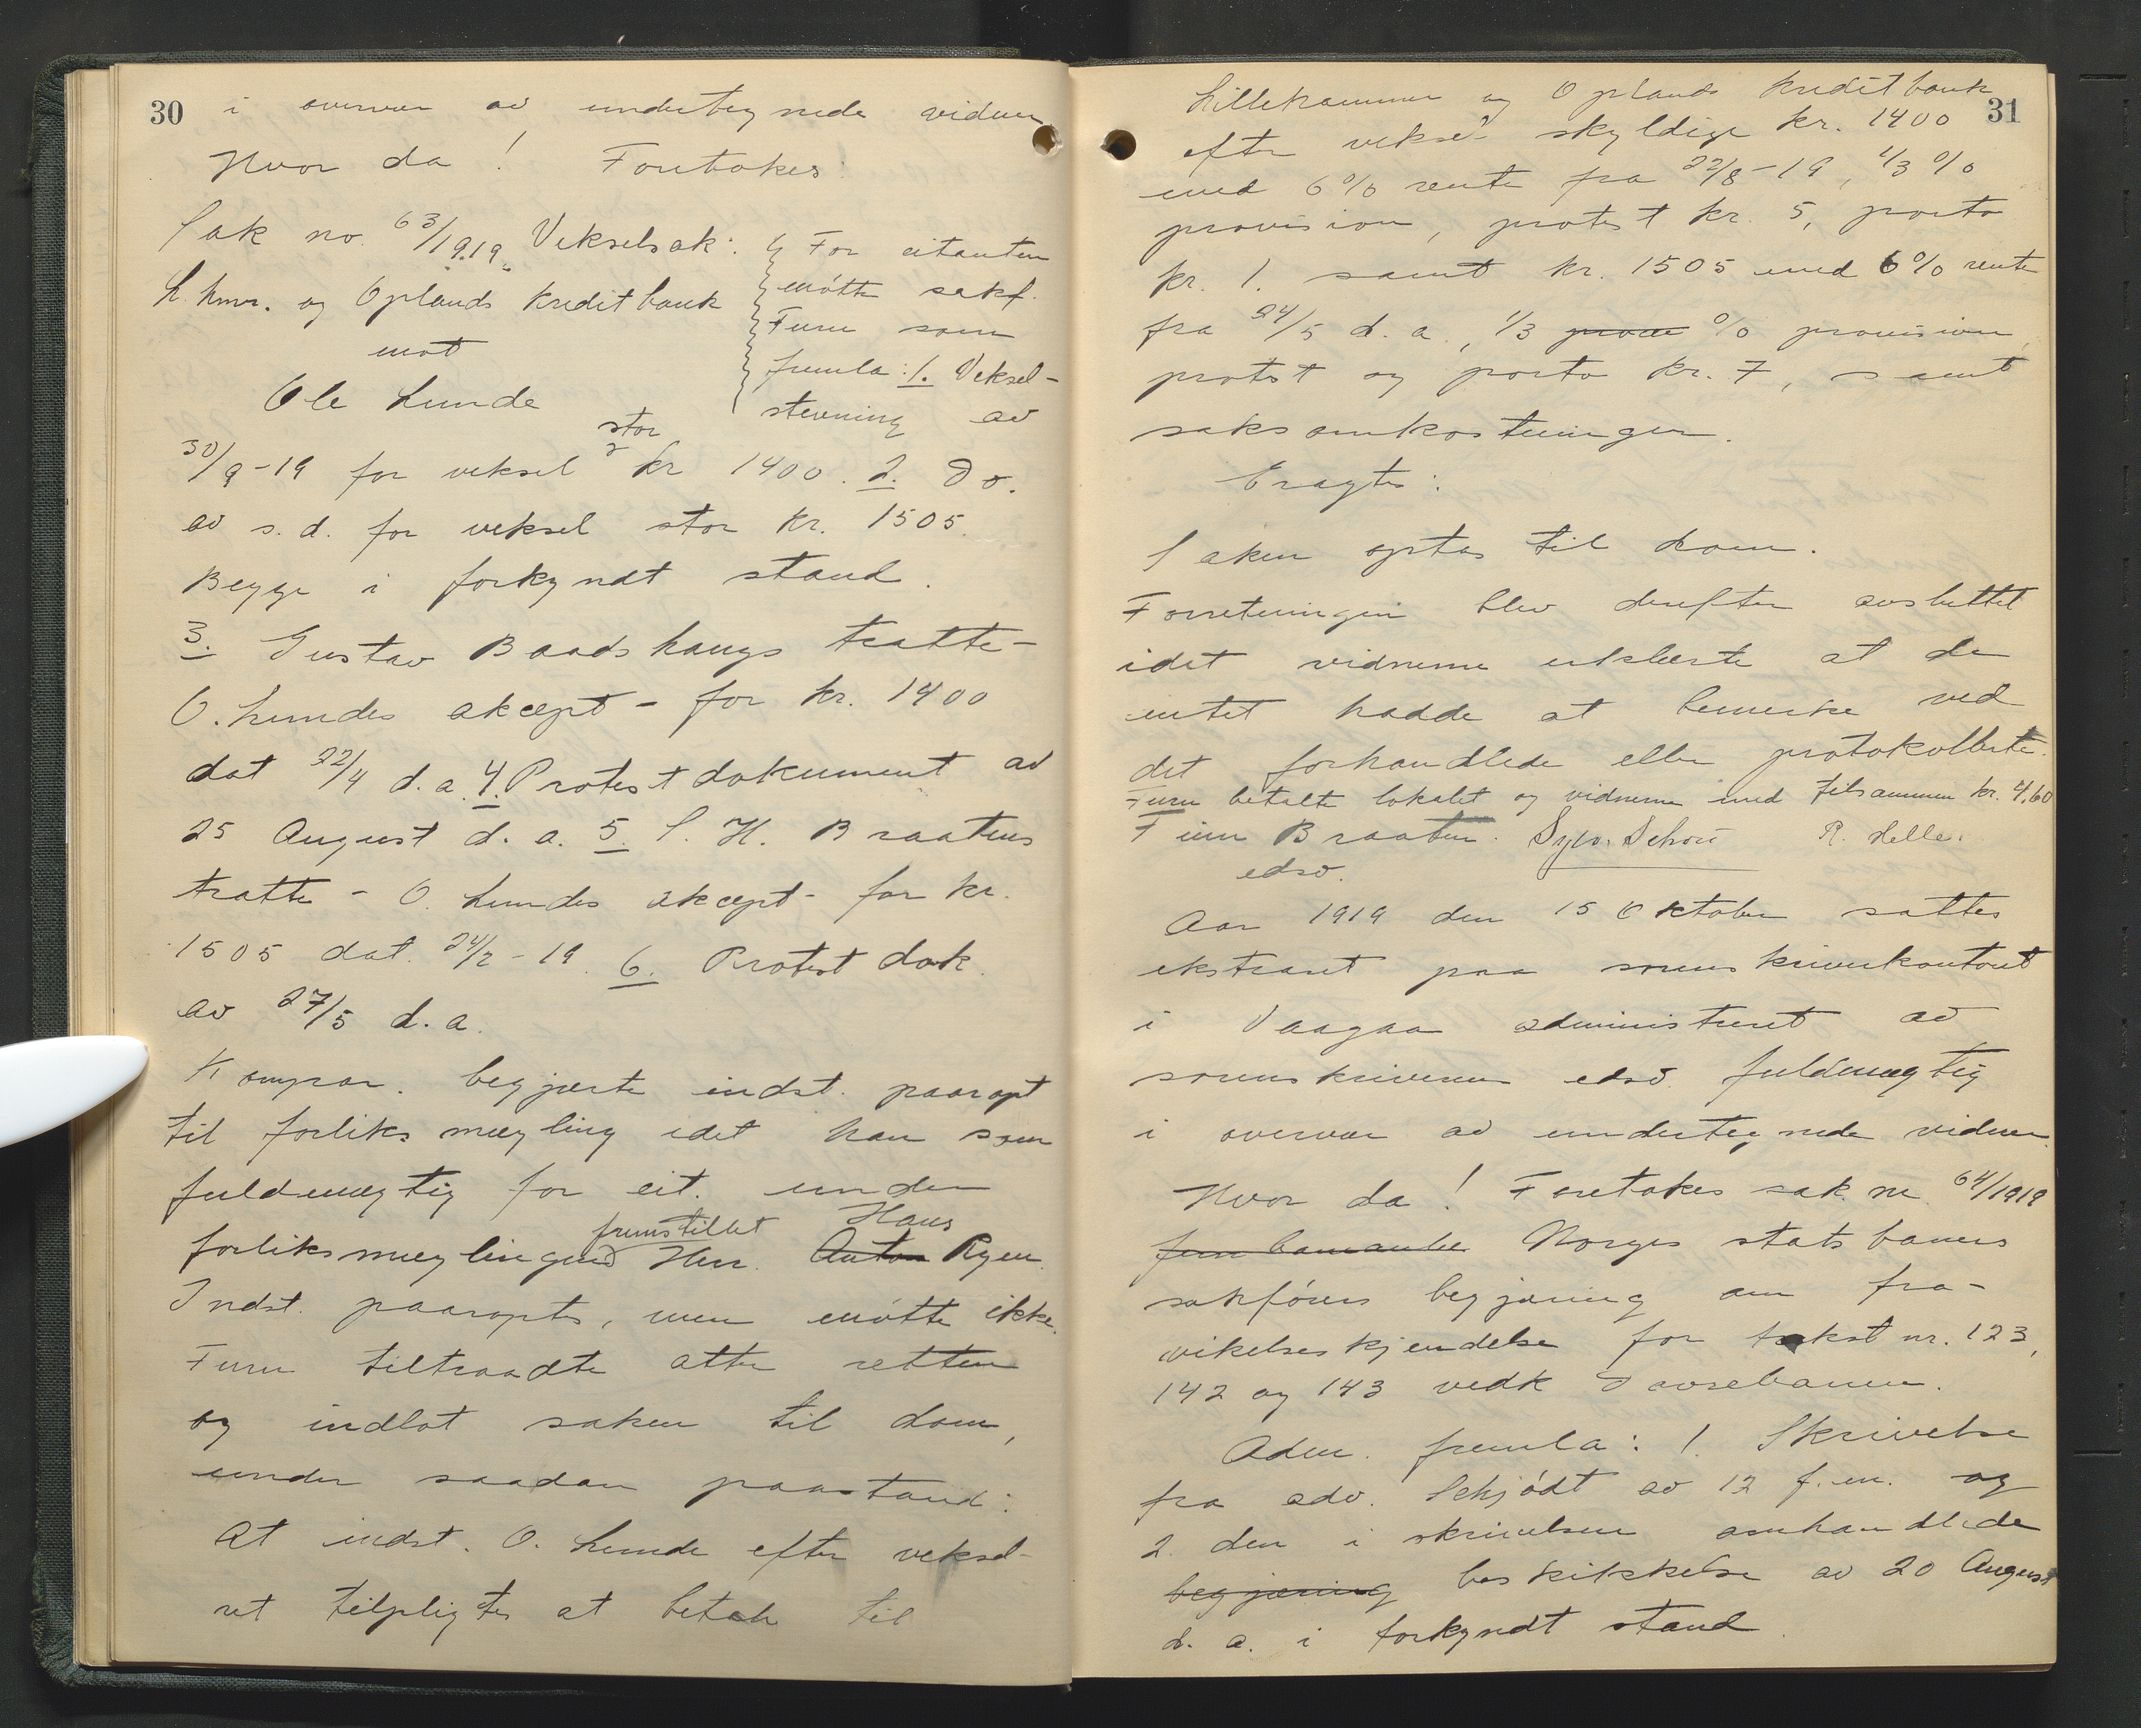 30
i overvær av undertegnede vidner
Hvor da! Foretokes:
Sak no. 63/1919. Vekselsak:
L.hmr. og Oplands Kreditbank
mot
Ole Lunde
For citanten
møtte sakf.
Furu som
fremla: 1. Veksel-
stevning av
30/9-19 for veksel stor kr 1400. 2. Do.
av s.d. for veksel stor kr. 1505.
Begge i forkyndt stand.
3. Gustav Baadshaugs tratte-
O. Lundes akcept - for kr. 1400
dat 22/4 d.a. 4. Protestdokument av
25 August d.a. 5. S. H. Braatens
tratte - O. Lundes akcept - for kr.
1505 dat. 24/2-19. 6. Protest dok.
av 27/5 d.a.
Kompar. begjærte indst. paaropt
til forliksmægling idet han som
fuldmægtig for cit. under
forliksmæglingen fremstillet Herr. Anton Hans Ryen.
Indst. paaroptes, men møtte ikke.
Furu tiltraadte atter retten
og indlot saken til dom,
under saadan paastand:
At indst. O. Lunde efter veksel-
ret tilpligtes at betale til
31
Lillehammer og Oplands Kreditbank
efter veksel skyldige kr. 1400
med 6% rente fra 22/8-19, 1/3 %
provision, protest kr. 5, porto
kr. 1. samt kr. 1505 med 6% rente
fra 24/5 d.a., 1/3 % provision,
protest og porto kr. 7, samt
saksomkostninger.
Eragtes:
Saken optas til dom.
Forretningen blev derefter avsluttet
idet vidnerne erklærte at de
intet hadde at bemerke ved
det forhandlede eller protokollerte.
Furu betalte lokalet og vidnerne med tilsammen kr. 4,60
Finn Braaten. Sylv. Schou R. Helle.
edsv.
Aar 1919 den 15 Oktober sattes
ekstraret paa sorenskriverkontoret
i Vaagaa administreret av
sorenskriverens edsv. fuldmægtig
i overvær av undertegnede vidner.
Hvor da! Foretokes sak nr. 64/1919
Norges statsbaners
sakførers begjæring om fra-
vikelseskjendelse for takst nr. 123,
142 og 143 vedk Dovrebanen.
Adm. fremla: 1. Skrivelse
fra adv. Schjødt av 12 f.m. og
2. den i skrivelsen omhandlede
begjæring beskikkelse av 20 August
d.a. i forkyndt stand.